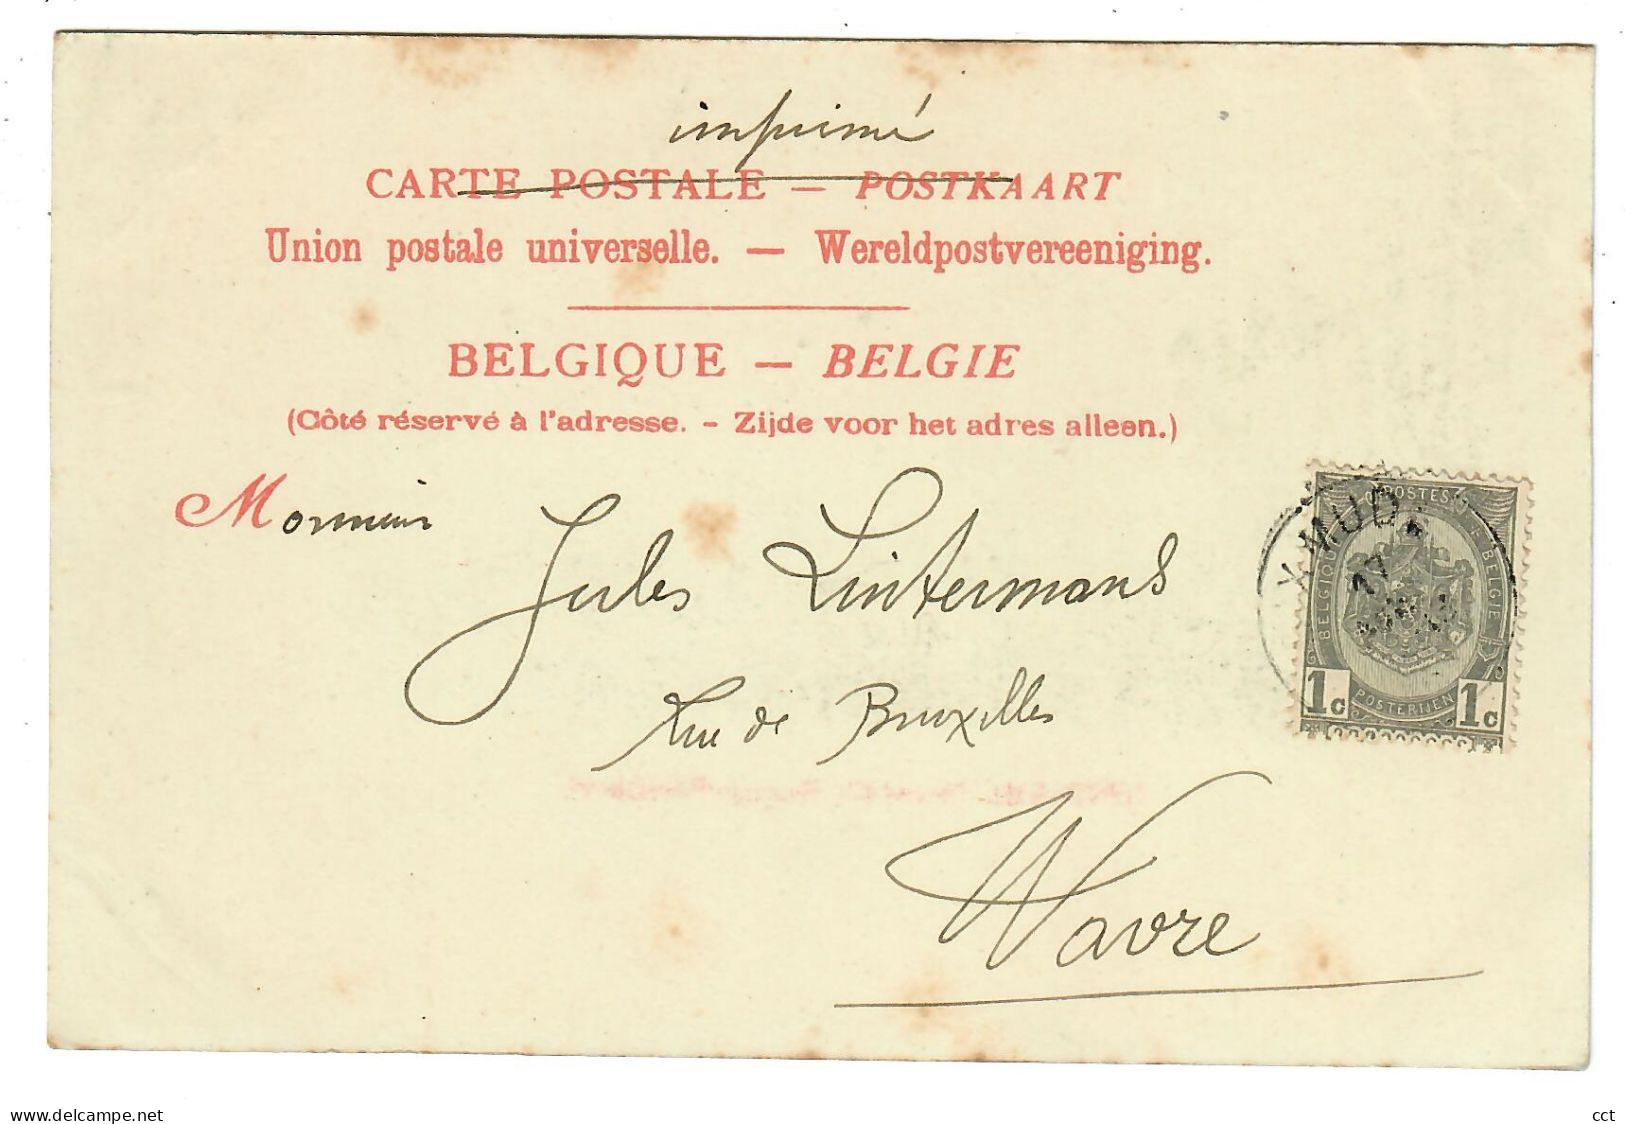 imprimé
CARTE POSTALE — POSTKAART
Union postale universelle. — Wereldpostvereeniging.
BELGIQUE — BELGIE
(Côté réservé à l'adresse. - Zijde voor het adres alleen.)
Monsieur Jules Lintermans
Rue de Bruxelles
Wavre
POSTES
BELGIQUE
BELGIE
XMUD
17
1c POSTERIJEN 1c
www.delcampe.net
cct